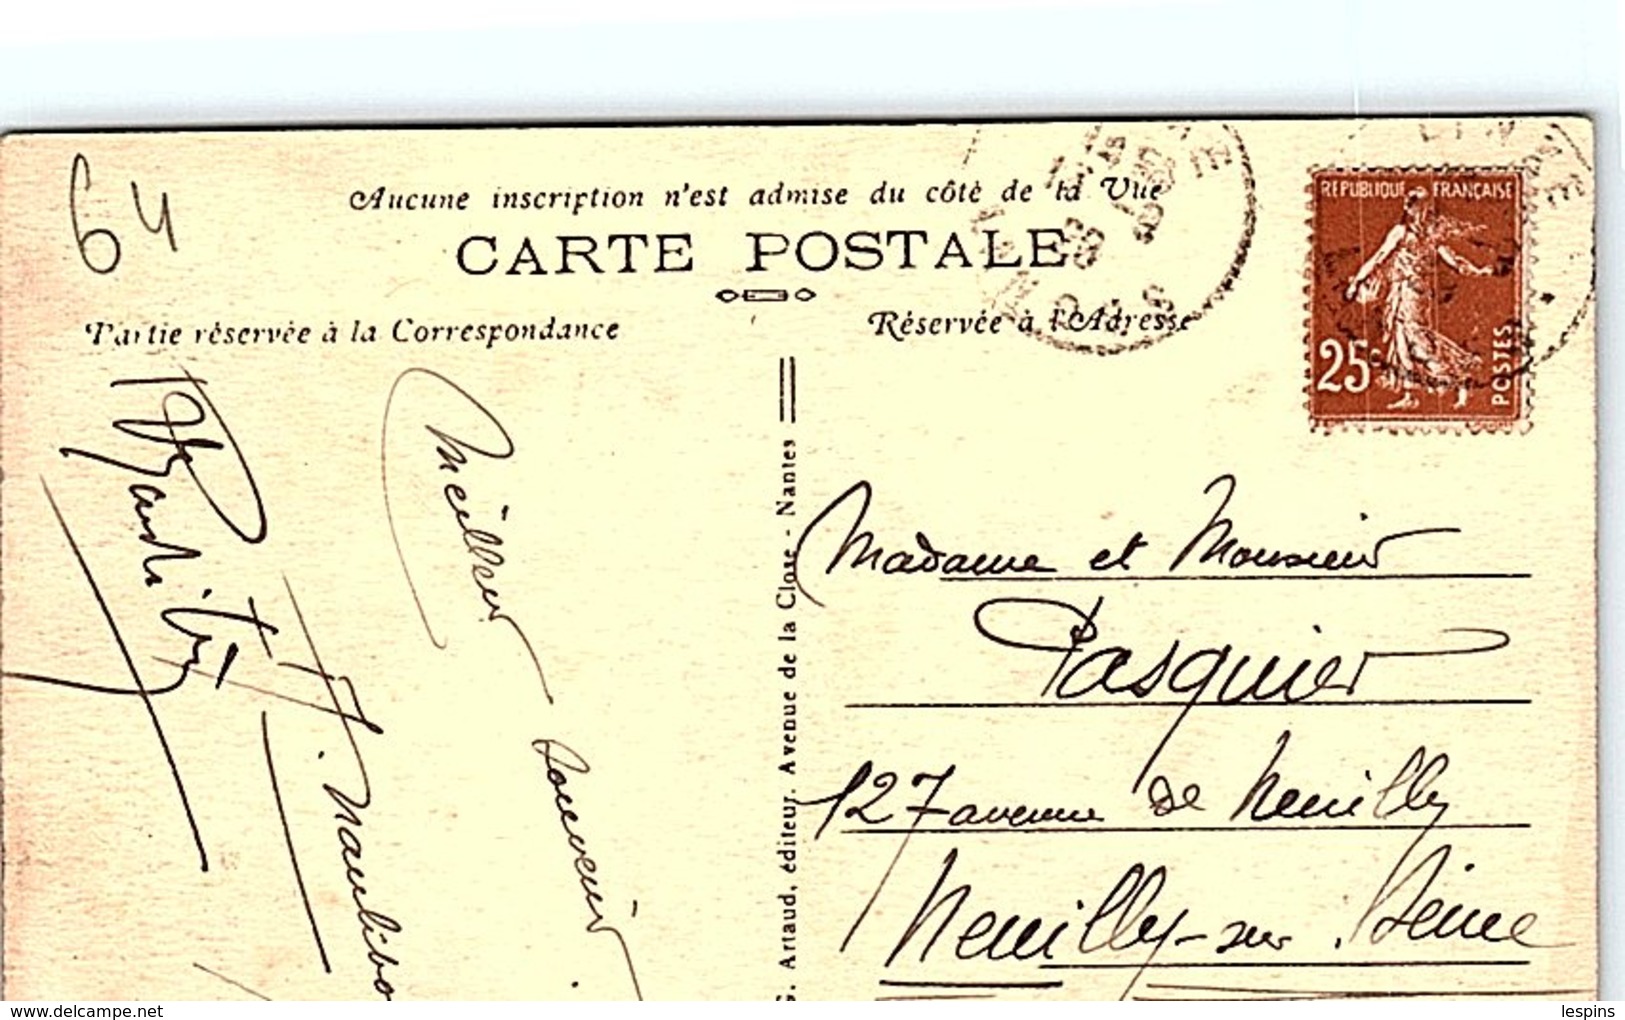 64
Aucune inscription n'est admise du côté de la Vue
CARTE POSTALE
Partie réservée à la Correspondance
Réservée à l'Adresse
REPUBLIQUE FRANÇAISE
25c
POSTES
Meilleur souvenir
G. Artaud, éditeur. Avenue de la Close - Nantes
Madame et Monsieur
Pasquier
127 avenue de Neuilly
Neuilly-sur-Seine
www.delcampe.net
lespins